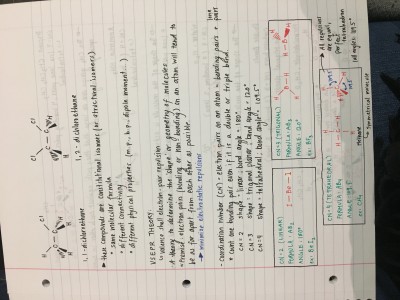 Cl
Cl
Cl
Cl
H
H
H
H
C
C
C
C
H
H
1,1-dichloroethane
1,2-dichloroethane
these compounds are constitutional isomers (or structural isomers)
• same molecular formula
• different connectivity
• different physical properties (m.p., b.p., dipole moment...)
VSEPR THEORY:
valence shell electron-pair repulsion
theory to determine the shape or geometry of molecules
Premise: electron pairs (bonding or non bonding) on an atom will tend to
be as far apart from each other as possible
→ minimize electrostatic repulsions
- Coordination number (CN) = electron pairs on an atom = bonding pairs + lone pair
* count one bonding pair even if it is a double or triple bond
CN = 2 shape = linear, bond angle = 180°
CN = 3 shape = trigonal planar, bond angle = 120°
CN = 4 shape = tetrahedral, bond angle = 109.5°
CN=2 (LINEAR)
FORMULA: AB₂
ANGLE: 180°
ex: BeI₂
I - Be - I
CN=3 (TRIGONAL)
FORMULA: AB₃
ANGLE: 120°
CN=4 (TETRAHEDRAL)
FORMULA: AB₄
ex: CH₄
Methane
→ symmetrical molecule
→ All repulsions
are equal,
perfect
tetrahedron
(all angles 109.5°)